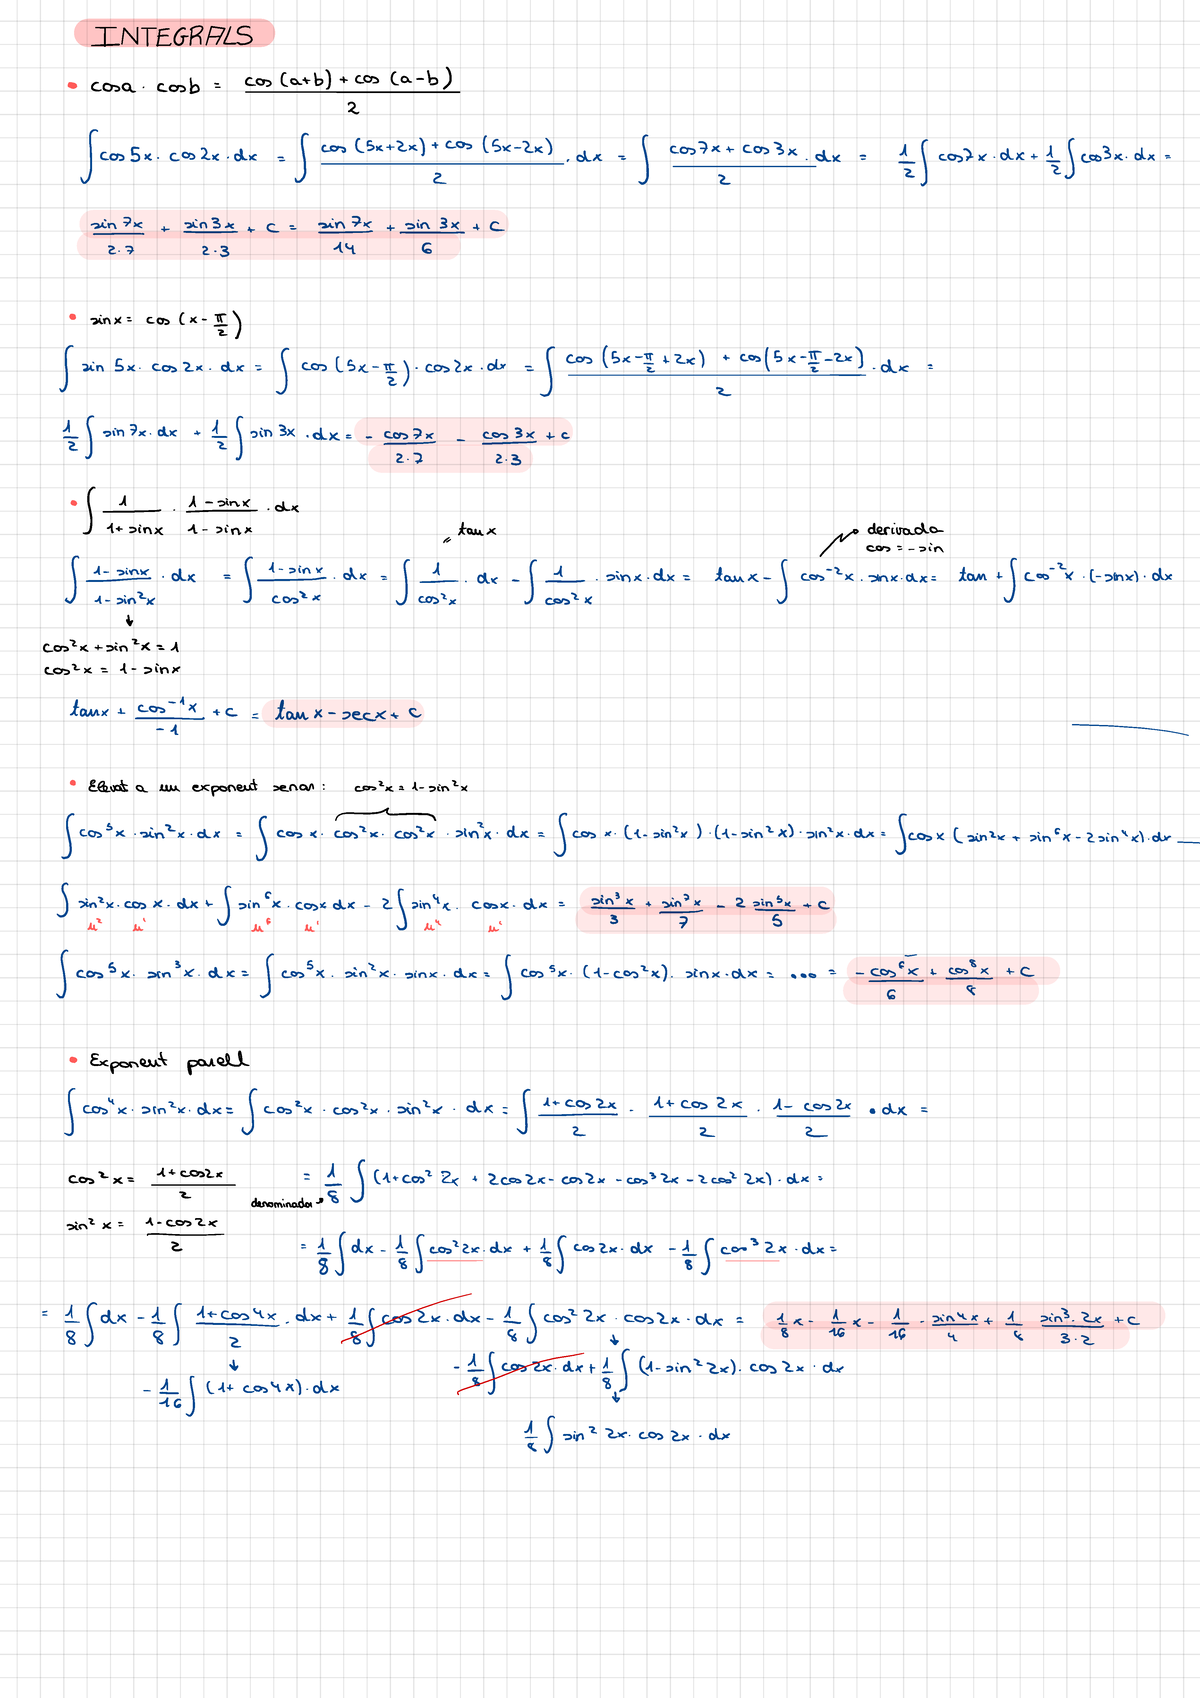 INTEGRALS
• cosa · cosb = (cos (a+b) + cos (a-b))/2
∫ cos 5x · cos 2x · dx = ∫ (cos (5x+2x) + cos (5x-2x))/2 · dx = ∫ (cos7x + cos 3x)/2 · dx = 1/2 ∫ cos7x · dx + 1/2 ∫ cos3x · dx =
sin 7x/2·7 + sin3x/2·3 + C = sin 7x/14 + sin 3x/6 + C
• sinx = cos (x - π/2)
∫ sin 5x · cos 2x · dx = ∫ cos (5x - π/2) · cos2x · dx = ∫ (cos (5x - π/2 + 2x) + cos(5x - π/2 - 2x))/2 · dx =
1/2 ∫ sin 7x · dx + 1/2 ∫ sin 3x · dx = - cos7x/2·7 - cos 3x/2·3 + C
• ∫ 1/(1+ sinx) · (1 - sinx)/(1 - sinx) · dx
= tanx
derivada
cos = -sin
∫ (1 - sinx)/(1 - sin²x) · dx = ∫ (1 - sinx)/cos²x · dx = ∫ 1/cos²x · dx - ∫ 1/cos²x · sinx · dx = tanx - ∫ cos⁻²x · sinx · dx = tan + ∫ cos⁻²x · (-sinx) · dx
↓
cos²x + sin²x = 1
cos²x = 1 - sinx
tanx + cos⁻¹x/-1 + C = tan x - secx + C
• Elevat a un exponent senar : cos²x = 1 - sin²x
∫ cos⁵x · sin²x · dx = ∫ cos x · cos²x · cos²x · sin²x · dx = ∫ cos x · (1 - sin²x) · (1 - sin²x) · sin²x · dx = ∫ cosx (sin²x + sin⁶x - 2sin⁴x) · dx
∫ sin²x · cos x · dx + ∫ sin⁶x · cosx dx - 2 ∫ sin⁴x · cosx · dx = sin³x/3 + sin⁷x/7 - 2 sin⁵x/5 + C
u² u' u⁶ u' u⁴ u'
∫ cos⁵x · sin³x · dx = ∫ cos⁵x · sin²x · sinx · dx = ∫ cos⁵x · (1-cos²x) · sinx · dx = ... = -cos⁶x/6 + cos⁸x/8 + C
• Exponent parell
∫ cos⁴x · sin²x · dx = ∫ cos²x · cos²x · sin²x · dx = ∫ (1+ cos 2x)/2 · (1+ cos 2x)/2 · (1- cos 2x)/2 · dx =
cos²x = (1+cos2x)/2 = 1/8 ∫ (1+cos² 2x + 2cos2x - cos2x - cos³2x - 2cos² 2x) · dx =
denominador
sin²x = (1-cos2x)/2 = 1/8 ∫ dx - 1/8 ∫ cos²2x · dx + 1/8 ∫ cos2x · dx - 1/8 ∫ cos³ 2x · dx =
= 1/8 ∫ dx - 1/8 ∫ (1+cos4x)/2 · dx + 1/8 ∫ cos2x · dx - 1/8 ∫ cos² 2x · cos2x · dx = 1/8 x - 1/16 x - 1/16 · sin4x/4 + 1/8 sin³ · 2x/3·2 + C
↓ ↓
- 1/8 ∫ cos 2x · dx + 1/8 ∫ (1-sin²2x) · cos 2x · dx
- 1/16 ∫ (1+ cos4x) · dx
↓
1/8 ∫ sin² 2x · cos 2x · dx